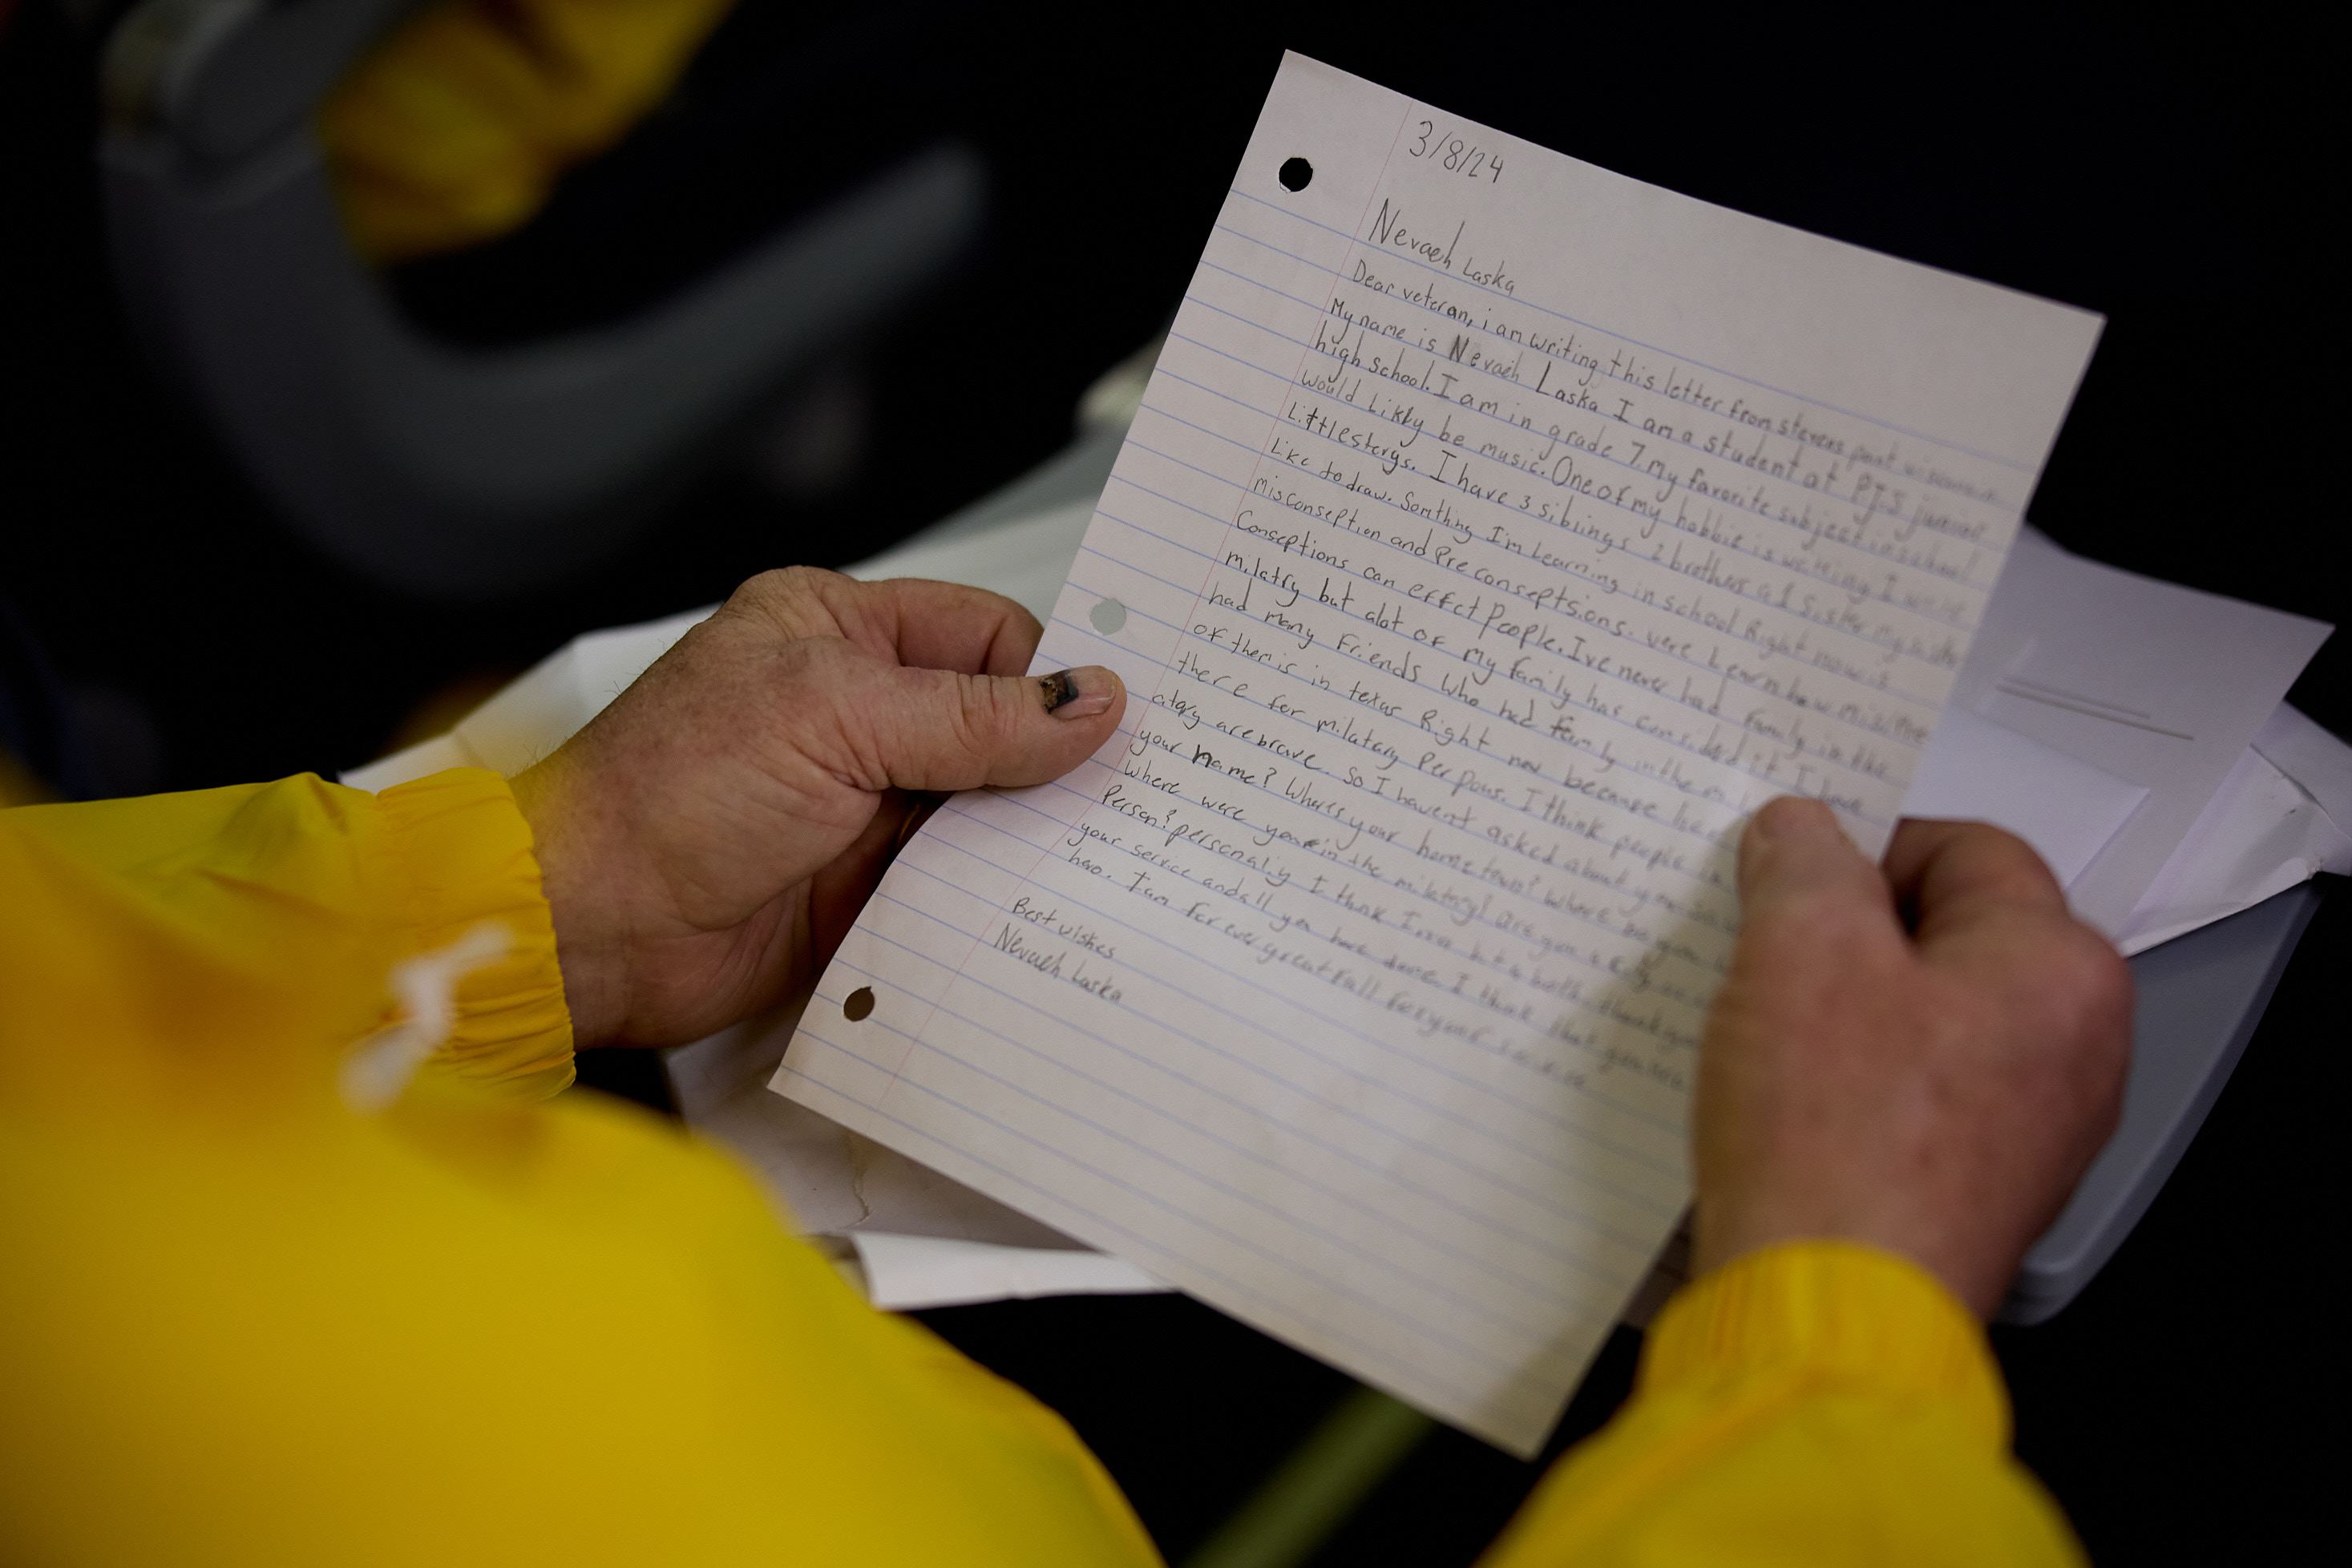 3/8/24
Nevaeh Laska
Dear veteran, i am writing this letter from stevens point
My name is Nevaeh Laska I am a student at PJS junior
high school. I am in grade 7. my favorite subject in school
would likly be music. One of my hobbie is writing I write
Little storys. I have 3 sibiings 2 brothers a 1 sister
Like to draw. Somthing I'm Learning in school Right now is
misconseption and Preconseptsions. were Learn how mis
Conseptions can effct People. Ive never had family in the
milatry but alot of my family has considerd it I have
had many Friends who had family in the
of them is in texas Right now because
there for milatary Perpous. I think people
atary are brave. So I havent asked about you
your name? Wheres your home town? where
where were you in the milatry? are you a
Person? personaliy I think I
your service and all you have done. I think that
hero. I am For ever greatfall for your
Best wishes
Nevaeh Laska